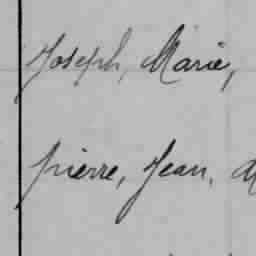 Joseph, Marie,
pierre, Jean,